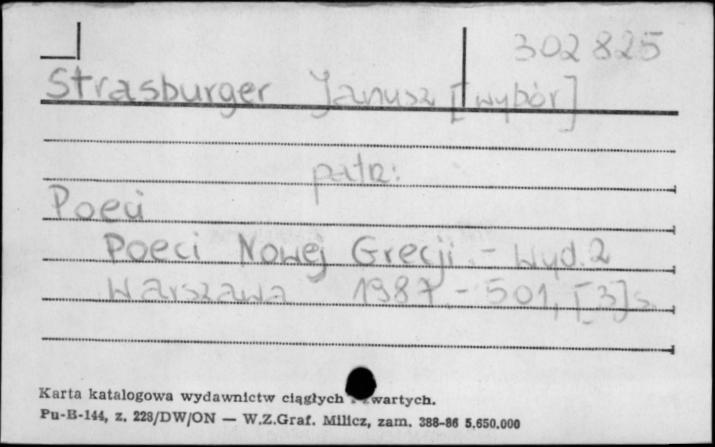 302825
Strasburger Janusz [wybór]
patrz:
Poeci
Poeci Nowej Grecji. - Wyd. 2
Warszawa 1987. - 501, [3] s.
Karta katalogowa wydawnictw ciągłych wartych.
Pu-B-144, z. 228/DW/ON — W.Z.Graf. Milicz, zam. 388-86 5.650.000